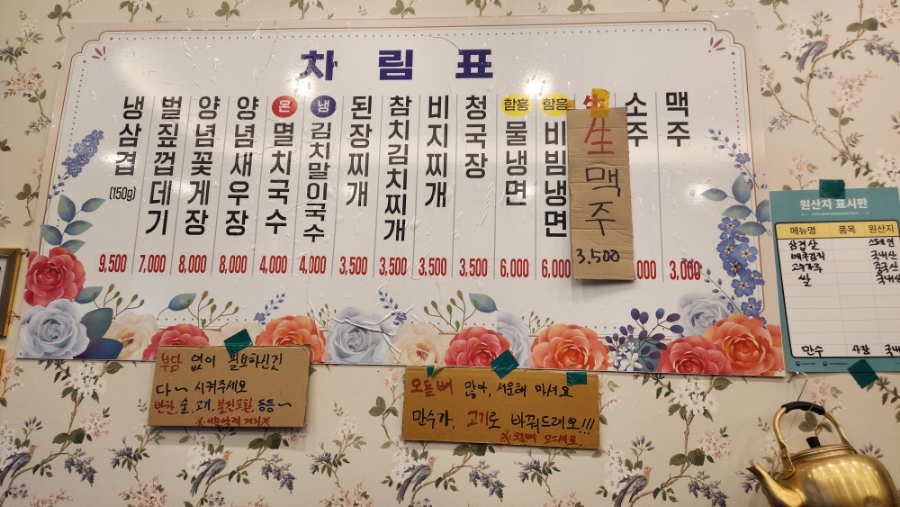 차림표
냉삼겹 (150g) 9,500
벌짚껍데기 7,000
양념꽃게장 8,000
양념새우장 8,000
온 멸치국수 4,000
냉 김치말이국수 4,000
된장찌개 3,500
참치김치찌개 3,500
비지찌개 3,500
청국장 3,500
함흥 물냉면 6,000
함흥 비빔냉면 6,000
生맥주 3.500
소주 000
맥주 3,000
원산지 표시판
메뉴명 품목 원산지
삼겹살
배추김치 국내산
고추가루 중국산
쌀 국내산
만수 사장
부담 없이 필요하신진
다~ 시켜주세요
반찬, 술, 고기, 불판교환, 등등~
오돌뼈 많아, 서운해 마셔요
만수가, 고기로 바꿔드려요!!!